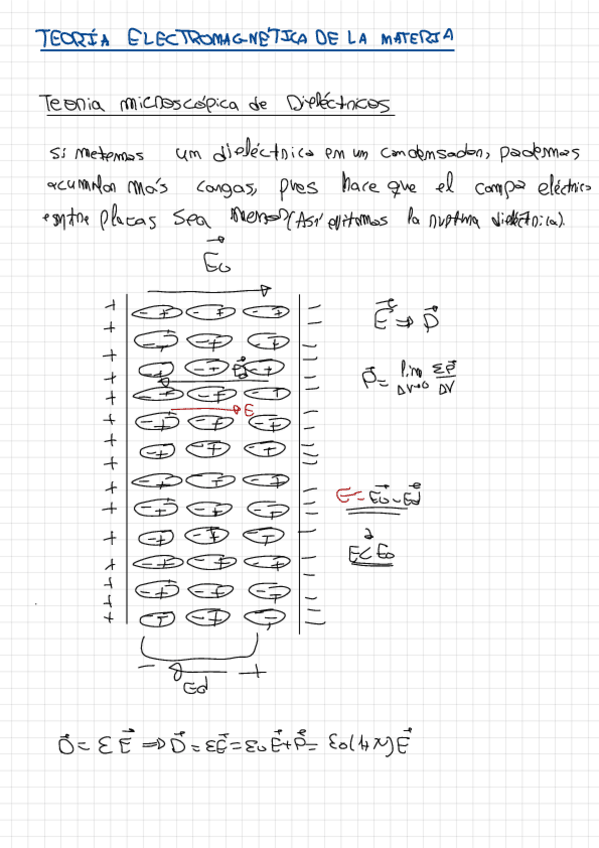 TEORÍA ELECTROMAGNÉTICA DE LA MATERIA
Teoria microscópica de Dieléctricos
Si metemos um dieléctrico em un condensador, podemos
acumular más cargas, pues hace que el campo eléctrico
entre placas sea menor (Así evitamos la ruptura dieléctrica).
E⃗o
E⃗ ⇒ P⃗
P⃗ = lim ΔV→0 Σp⃗/ΔV
E
E = E⃗o - E⃗d
E < Eo
- +
Ed
D⃗ = ε E⃗ ⇒ D⃗ = εE⃗ = εo E⃗ + P⃗ = εo(1+χ)E⃗